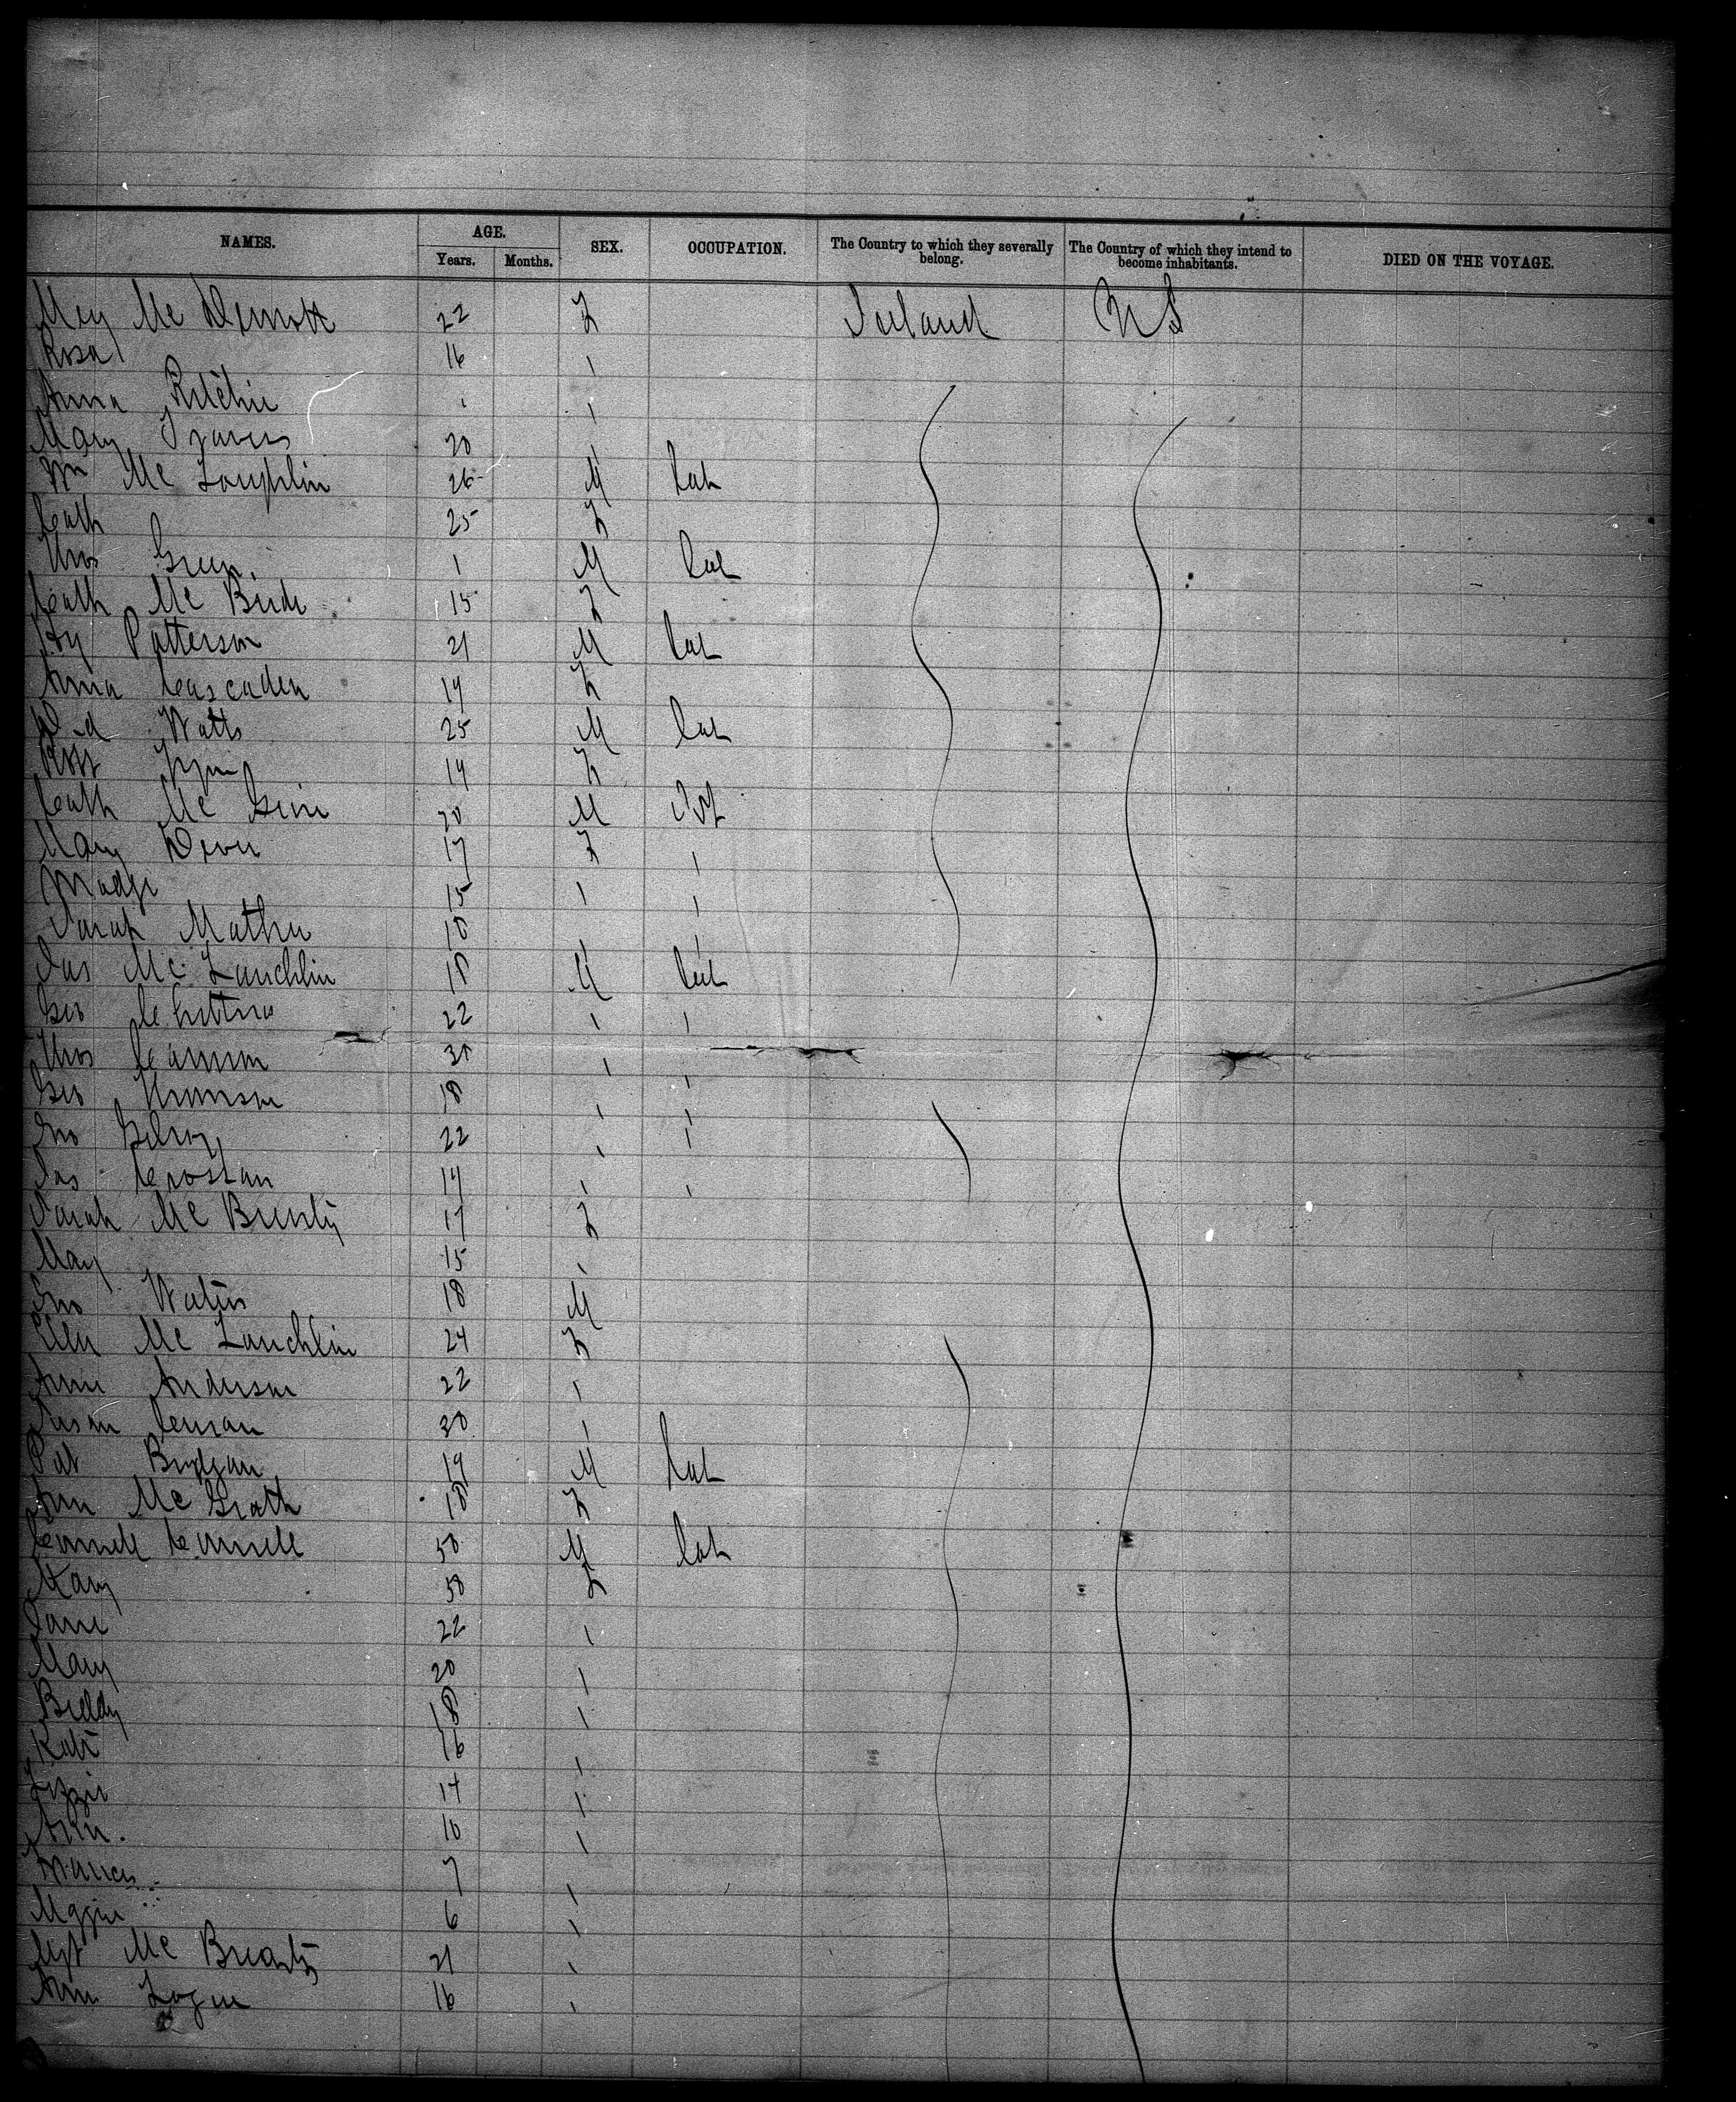 NAMES. AGE. Years. Months. SEX. OCCUPATION. The Country to which they severally belong. The Country of which they intend to become inhabitants. DIED ON THE VOYAGE.
Mcy Mc Dermott 22 F Ireland US
Rosa 16 "
Anna Ritchie " "
Mary Travers 20 "
Wm Mc Loughlin 26 M Lab
Cath 25 F
Thos Green 1 M Lab
Cath Mc Bride 15 F
Hy Patterson 21 M Lab
Anna Cascaden 19 F
Watts 25 M Lab
19 F
Cath Mc 20 M
Mary Dever 17 F "
Madge 15 " "
Sarah Mather 18 "
Jas Mc Lauchlin 18 M Lab
Geo 22 " "
Thos Cannon 30 " "
Geo Thomson 18 " "
Jno Gilroy 22 " "
Jas Crossan 19 " "
Sarah Mc Brearty 17 F
May 15 "
Jno Waters 18 M
Ellen Mc Lauchlin 24 F
Annie Anderson 22 "
Susan 30 "
Pat 19 M Lab
Ann Mc Grath 18 F
Connell Connell 50 M Lab
Mary 50 F
Jane 22 "
Mary 20 "
Biddy 18 "
Kate 16 "
Lizzie 14 "
Ann 10 "
Frances 7 "
Maggie 6 "
Mgt Mc Brearty 21 "
Ann Logue 16 "